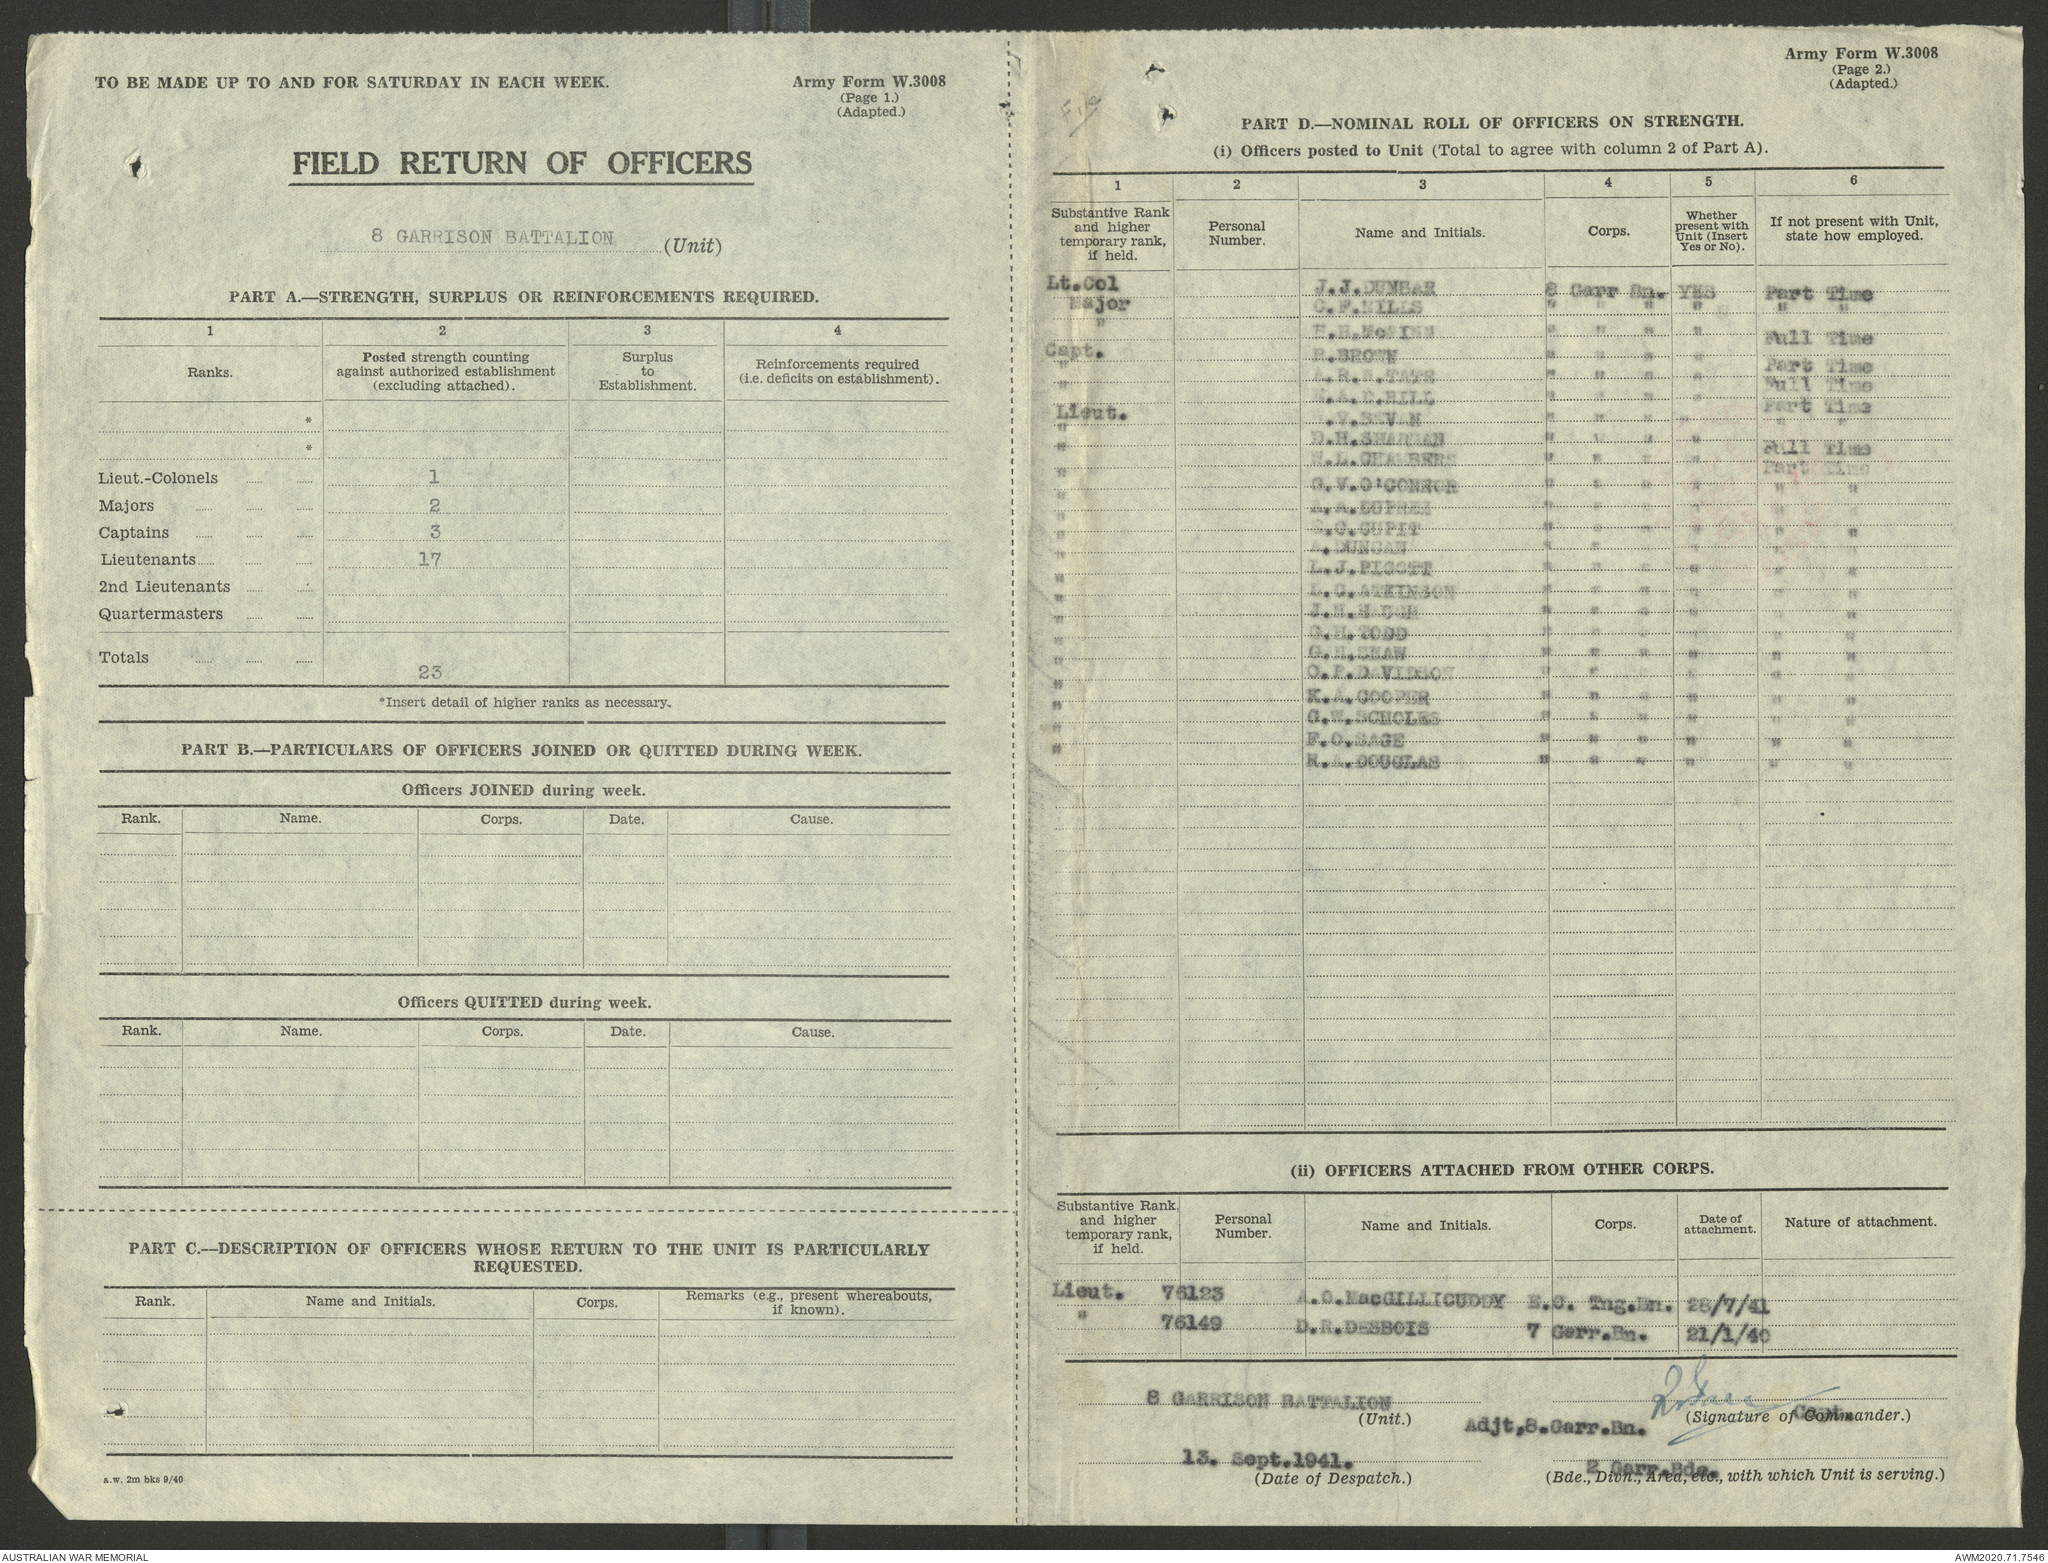 TO BE MADE UP TO AND FOR SATURDAY IN EACH WEEK.
Army Form W.3008
(Page 1.)
(Adapted.)
FIELD RETURN OF OFFICERS
8 GARRISON BATTALION (Unit)
PART A.—STRENGTH, SURPLUS OR REINFORCEMENTS REQUIRED.
1 2 3 4
Ranks. Posted strength counting against authorized establishment (excluding attached). Surplus to Establishment. Reinforcements required (i.e. deficits on establishment).
*
*
Lieut.-Colonels 1
Majors 2
Captains 3
Lieutenants 17
2nd Lieutenants
Quartermasters
Totals 23
*Insert detail of higher ranks as necessary.
PART B.—PARTICULARS OF OFFICERS JOINED OR QUITTED DURING WEEK.
Officers JOINED during week.
Rank. Name. Corps. Date. Cause.
Officers QUITTED during week.
Rank. Name. Corps. Date. Cause.
PART C.—DESCRIPTION OF OFFICERS WHOSE RETURN TO THE UNIT IS PARTICULARLY
REQUESTED.
Rank. Name and Initials. Corps. Remarks (e.g., present whereabouts, if known).
a.w. 2m bks 9/40
Army Form W.3008
(Page 2.)
(Adapted.)
File
PART D.—NOMINAL ROLL OF OFFICERS ON STRENGTH.
(i) Officers posted to Unit (Total to agree with column 2 of Part A).
1 2 3 4 5 6
Substantive Rank and higher temporary rank, if held. Personal Number. Name and Initials. Corps. Whether present with Unit (Insert Yes or No). If not present with Unit, state how employed.
Lt.Col J.J.DUNBAR 8 Garr Bn. YES Part Time
Major C.F.MILLS " " " " " "
" H.H.McMINN " " " " Full Time
Capt. R.BROWN " " " " Part Time
" A.R.W.TATE " " " " Full Time
" HILL " " " " Part Time
Lieut. V.BEVAN " " " " " "
" D.H.SHARMAN " " " " Full Time
" W.L.CHAMBERS " " " " Part Time
" G.V.O'CONNOR " " " " " "
" A.DUPREZ " " " " " "
" C.CUPIT " " " " " "
" DUNCAN " " " " " "
" L.J.PIGOTT " " " " " "
" L.G.ATKINSON " " " " " "
" J.H.HAUGH " " " " " "
" G.H.TODD " " " " " "
" G.H.SHAW " " " " " "
" O.P.DAVIDSON " " " " " "
" K.A.COOPER " " " " " "
" G.W.SCHOLES " " " " " "
" F.O.SAGE " " " " " "
" R.A.DOUGLAS " " " " " "
(ii) OFFICERS ATTACHED FROM OTHER CORPS.
Substantive Rank and higher temporary rank, if held. Personal Number. Name and Initials. Corps. Date of attachment. Nature of attachment.
Lieut. 76123 A.O.MacGILLICUDDY E.C. Tng.Bn. 28/7/41
" 76149 D.R.DESBOIS 7 Garr.Bn. 21/1/40
8 GARRISON BATTALION
(Unit.)
Capt.
Adjt,8.Garr.Bn. (Signature of Commander.)
13. Sept.1941.
(Date of Despatch.)
2 Garr.Bde.
(Bde., Divn., Area, etc., with which Unit is serving.)
AUSTRALIAN WAR MEMORIAL
AWM2020.71.7546